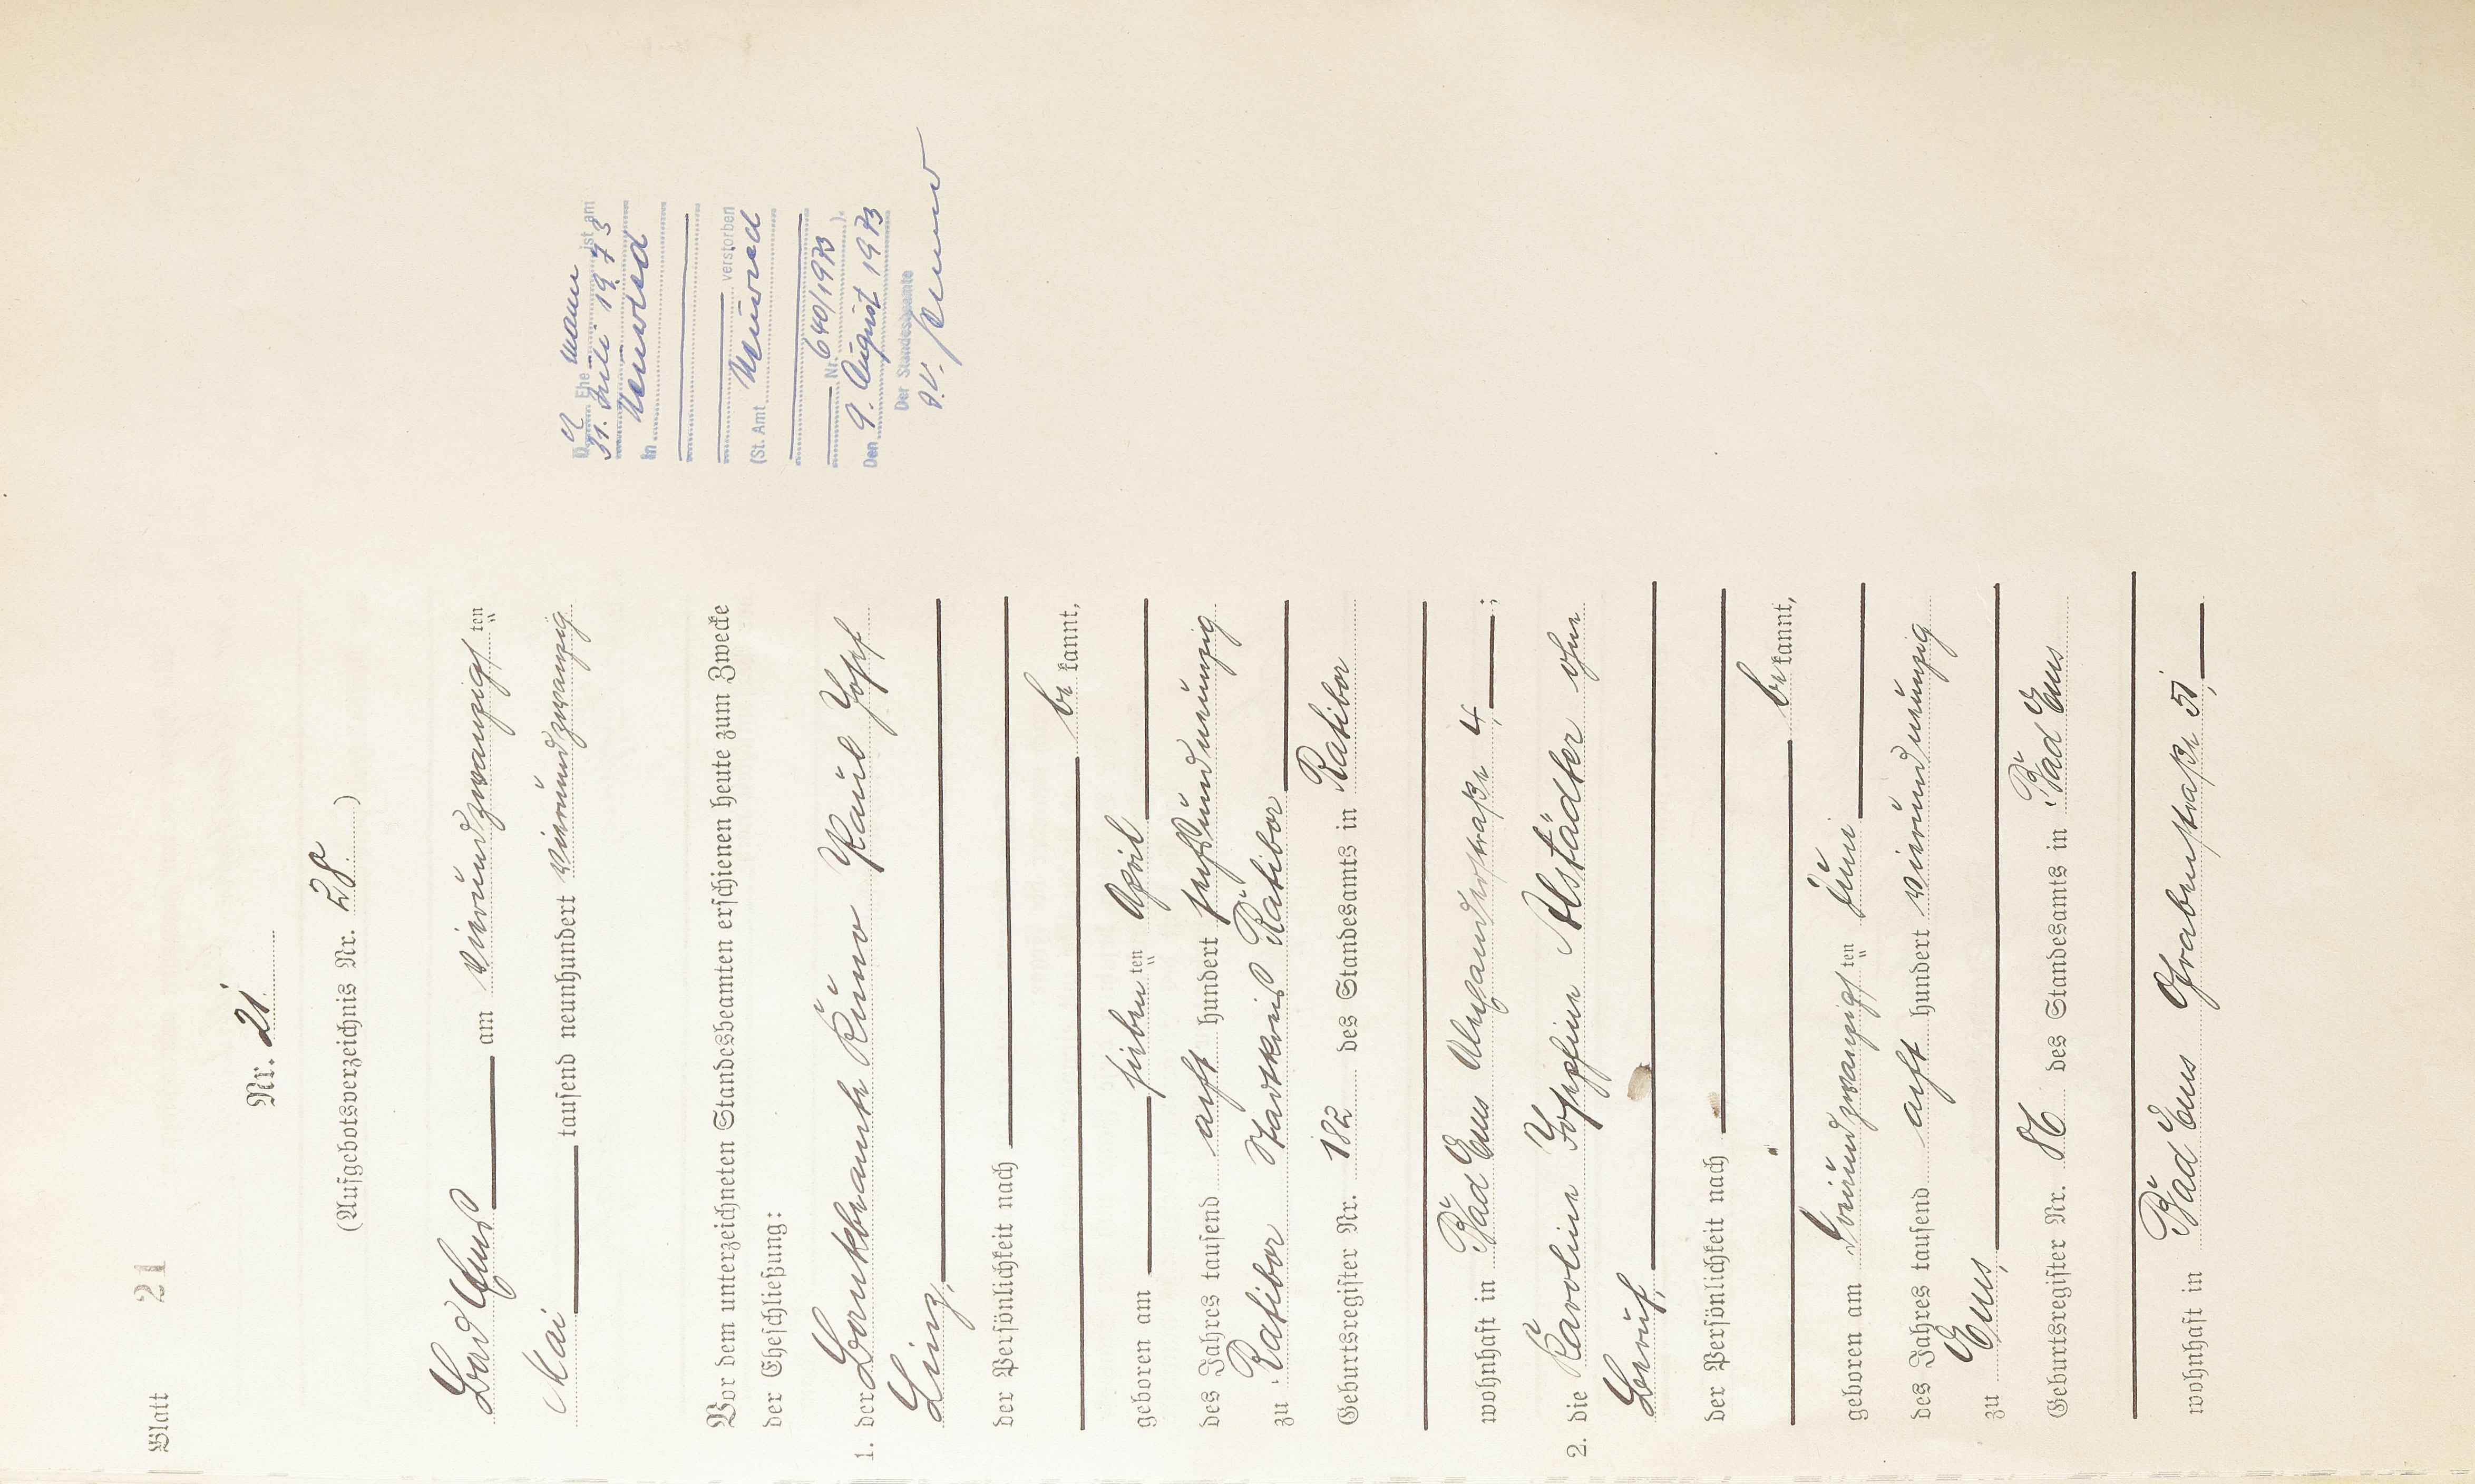 Blatt 21
Nr. 21.
(Aufgebotsverzeichnis Nr. 28.)
Bad Ems am vierundzwanzigsten
Mai tausend neunhundert vierundzwanzig
Vor dem unterzeichneten Standesbeamten erschienen heute zum Zwecke
der Eheschließung:
1. der Bankbeamte Kuno Paul Josef
Linz,
der Persönlichkeit nach
bekannt,
geboren am siebenten April
des Jahres tausend acht hundert sechsundneunzig
zu Ratibor Stadtkreis Ratibor
Geburtsregister Nr. 182 des Standesamts in Ratibor
wohnhaft in Bad Ems Alexanderstraße 4,;
2. die Karoline Josefine Alstädter ohne
Beruf,
der Persönlichkeit nach
bekannt,
geboren am dreiundzwanzigsten Juni
des Jahres tausend acht hundert vierundneunzig
zu Ems,
Geburtsregister Nr. 86 des Standesamts in Bad Ems
wohnhaft in Bad Ems Grabenstraße 51,
Der Ehemann ist am
31. Juli 1973
in Neuwied
verstorben
(St. Amt Neuwied
Nr. 640/1973).
Den 9. August 1973
Der Standesbeamte